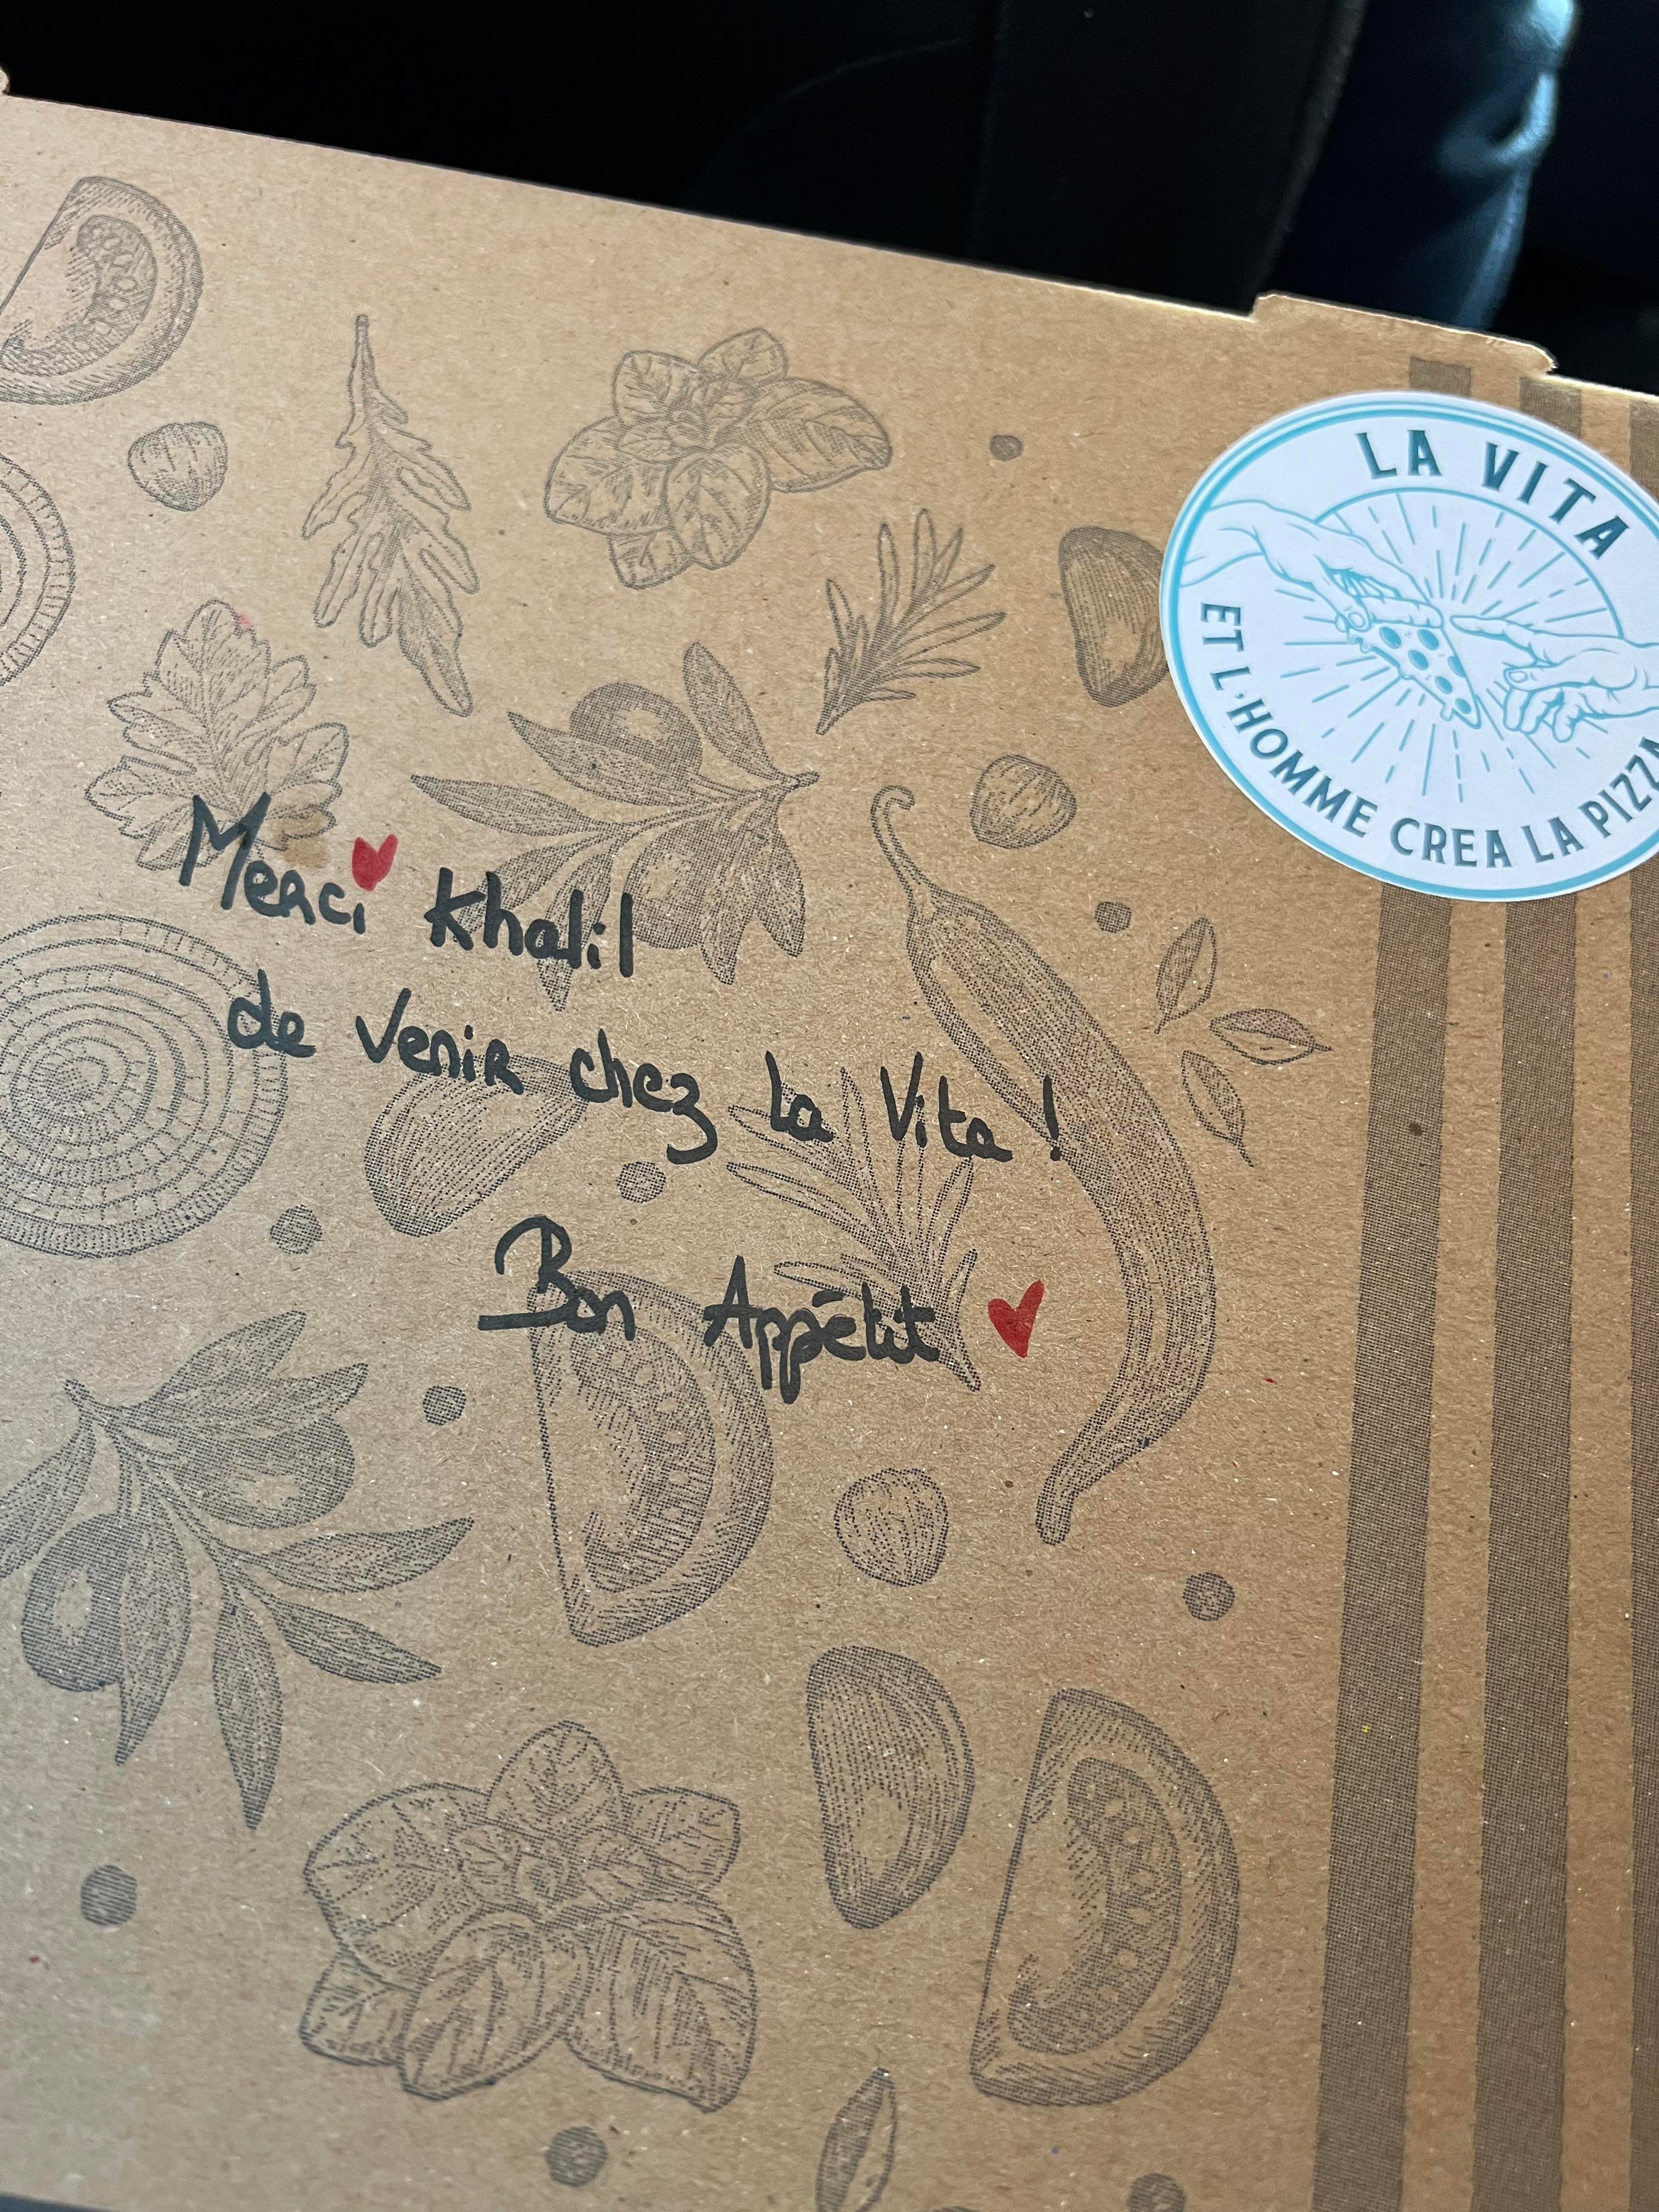 LA VITA
ET L'HOMME CREA LA PIZZA
Merci Khalil
de venir chez La Vita !
Bon Appétit